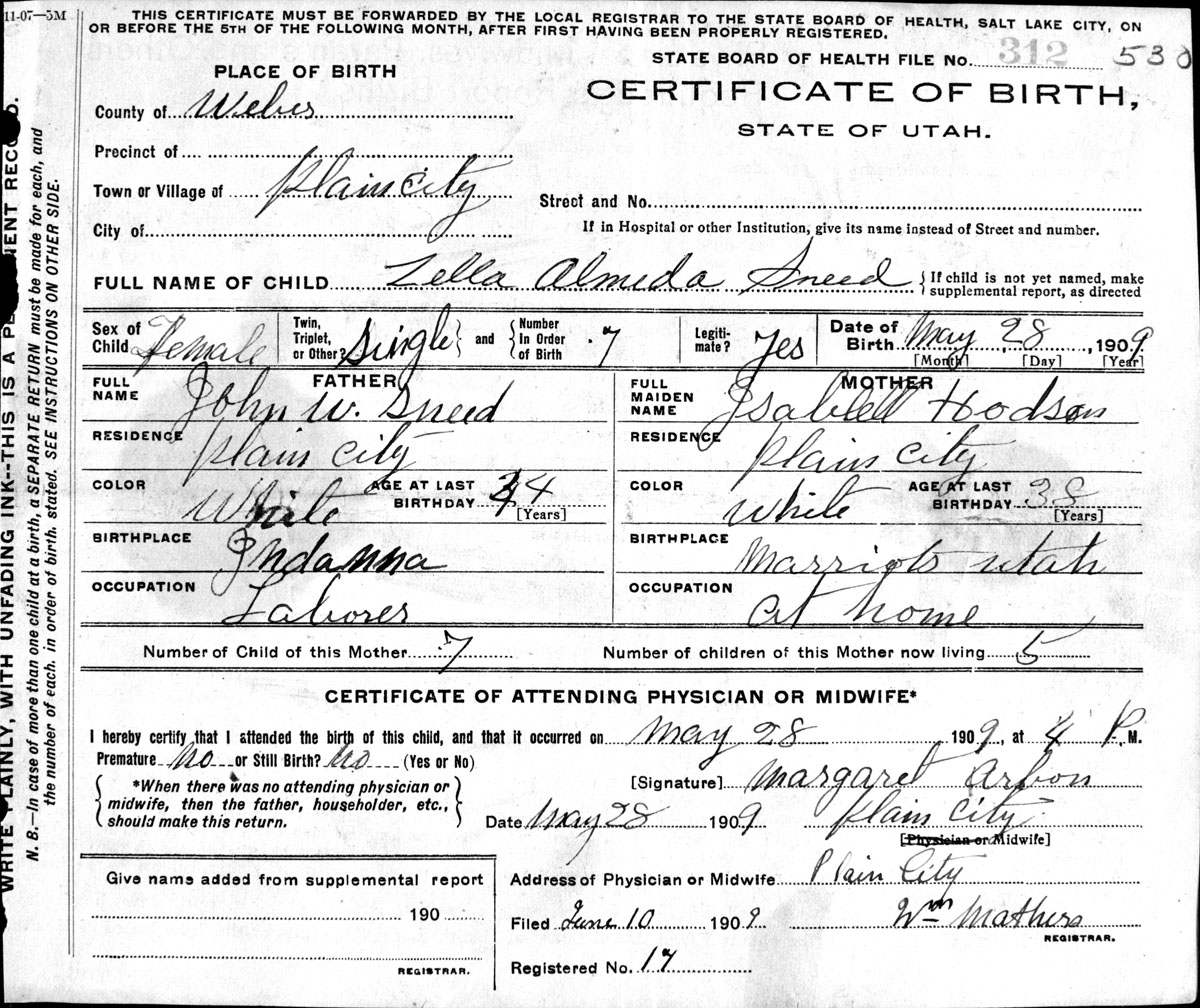 11-07—5M
THIS CERTIFICATE MUST BE FORWARDED BY THE LOCAL REGISTRAR TO THE STATE BOARD OF HEALTH, SALT LAKE CITY, ON
OR BEFORE THE 5TH OF THE FOLLOWING MONTH, AFTER FIRST HAVING BEEN PROPERLY REGISTERED.
STATE BOARD OF HEALTH FILE No. 312 530
PLACE OF BIRTH
CERTIFICATE OF BIRTH,
STATE OF UTAH.
County of Weber
Precinct of
Town or Village of Plain City
Street and No.
City of
If in Hospital or other Institution, give its name instead of Street and number.
FULL NAME OF CHILD Zella Almeda Sneed { If child is not yet named, make
supplemental report, as directed
Sex of Child Female
Twin, Triplet, or Other? Single } and { Number In Order of Birth 7
Legiti- mate? Yes
Date of Birth May 28, 1909
[Month] [Day] [Year]
FATHER
FULL NAME John W. Sneed
RESIDENCE Plain City
COLOR White AGE AT LAST BIRTHDAY 44
[Years]
BIRTHPLACE Indanna
OCCUPATION Laborer
MOTHER
FULL MAIDEN NAME Isabell Hodson
RESIDENCE Plain City
COLOR White AGE AT LAST BIRTHDAY 38
[Years]
BIRTHPLACE Marriots Utah
OCCUPATION at home
Number of Child of this Mother 7 Number of children of this Mother now living 5
CERTIFICATE OF ATTENDING PHYSICIAN OR MIDWIFE*
I hereby certify that I attended the birth of this child, and that it occurred on May 28 1909, at 4 P. M.
Premature no or Still Birth? no (Yes or No)
{ *When there was no attending physician or
midwife, then the father, householder, etc.,
should make this return. }
[Signature] Margaret Arbon
Date May 28 1909 Plain City
[Physician or Midwife]
Give name added from supplemental report
190
REGISTRAR.
Address of Physician or Midwife Plain City
Filed June 10 1909 Wm Mathers
REGISTRAR.
Registered No. 17
WRITE PLAINLY, WITH UNFADING INK--THIS IS A PE ENT REC D.
N. B.—In case of more than one child at a birth, a SEPARATE RETURN must be made for each, and
the number of each, in order of birth, stated. SEE INSTRUCTIONS ON OTHER SIDE.